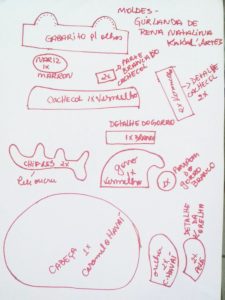 MOLDES -
GUIRLANDA DE
RENA NATALINA
Gabarito p/ olhos
NARIZ
1x
MARROM
2x
PARTE
BRANCA DO
CACHECOL
Cachecol 1x Vermelho
DETALHE
CACHECOL
2x
DETALHE DO GORRO
1x BRANCO
CHIFRES 2x
gorro
1x
vermelho
1x
POMPOM
do
GORRO
BRANCO
CABEÇA
1x
Caramelo
orelha
2x
DETALHE
DA
ORELHA
2x